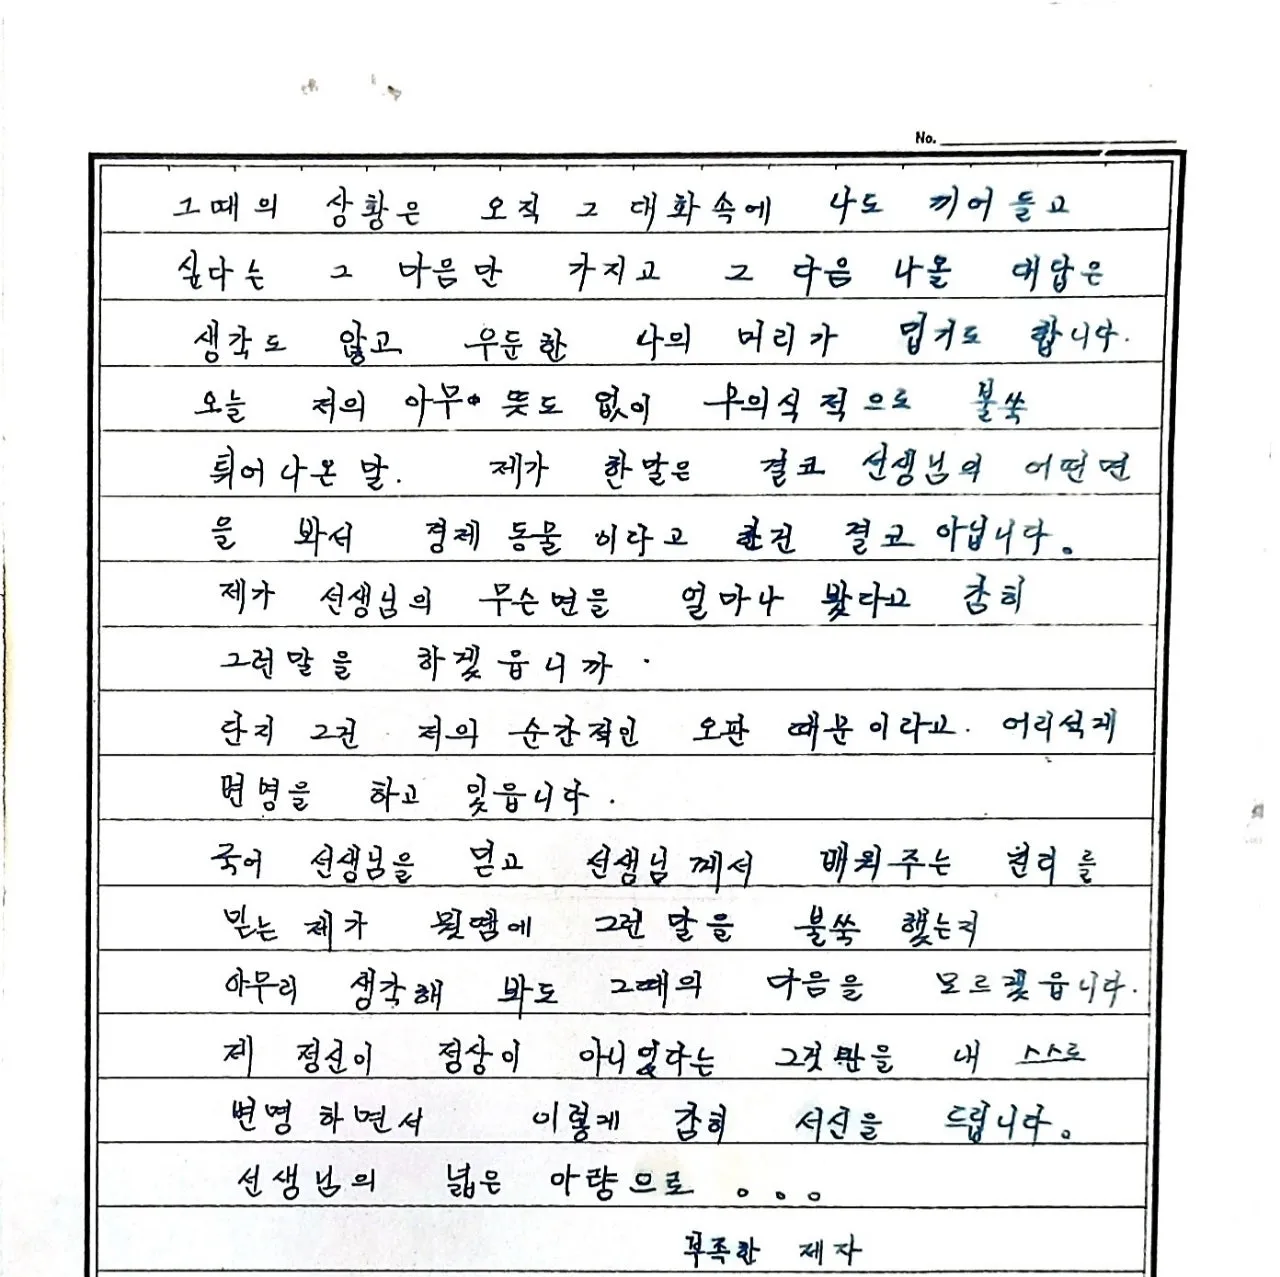 No.
그때의 상황은 오직 그 대화속에 나도 끼어들고
싶다는 그 마음만 가지고 그 다음 나올 대답은
생각도 않고 우둔한 나의 머리가 밉기도 합니다.
오늘 저의 아무 뜻도 없이 무의식적으로 불쑥
튀어나온 말. 제가 한말은 결코 선생님의 어떤면
을 봐서 경제 동물이라고 한건 결코 아닙니다.
제가 선생님의 무슨면을 얼마나 봤다고 감히
그런말을 하겠읍니까.
단지 그건 저의 순간적인 오판 때문이라고. 어리석게
변명을 하고 있읍니다.
국어 선생님을 믿고 선생님께서 배워주는 진리를
믿는 제가 뭣땜에 그런 말을 불쑥 했는지
아무리 생각해 봐도 그때의 마음을 모르겠읍니다.
제 정신이 정상이 아니었다는 그것만을 내 스스로
변명하면서 이렇게 감히 서신을 드립니다.
선생님의 넓은 아량으로 。。。
부족한 제자